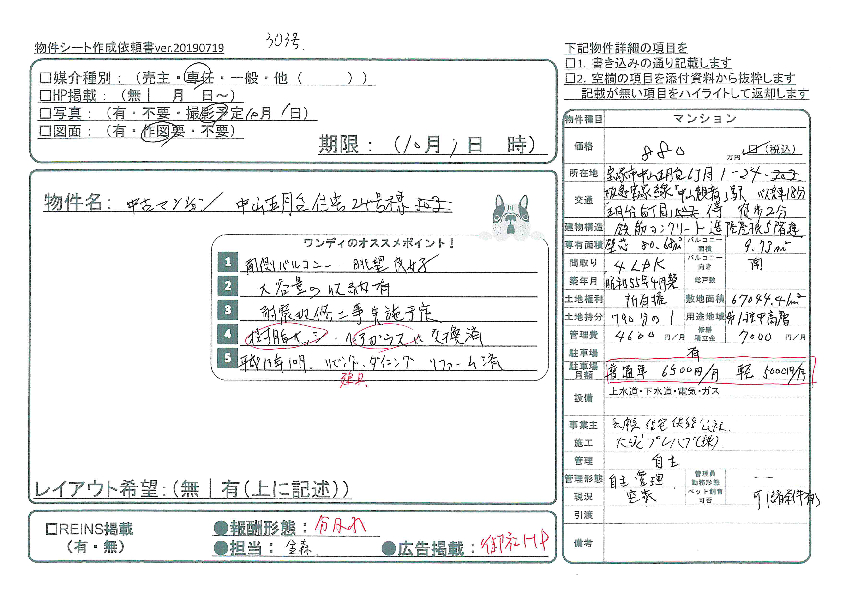 物件シート作成依頼書ver.20190719
303号.
□媒介種別：（売主・専任・一般・他（　　　））
□HP掲載：（無｜　月　日～）
□写真：（有・不要・撮影予定10月1日）
□図面：（有・作図要・不要）
期限：（10月1日　時）
物件名：中古マンション 中山五月台住宅24号棟
ワンディのオススメポイント！
1 南側バルコニー 眺望良好
2 大容量の収納有
3 耐震改修工事実施予定
4 樹脂サッシ・ペアガラスに交換済
5 平成13年10月 リビング・ダイニング リフォーム済
レイアウト希望：（無｜有（上に記述））
□REINS掲載
（有・無）
●報酬形態：分かれ
●担当：
●広告掲載：御社HP
下記物件詳細の項目を
□1. 書き込みの通り記載します
□2. 空欄の項目を添付資料から抜粋します
記載が無い項目をハイライトして返却します
物件種目 マンション
価格 880 万円 (税込)
所在地 宝塚市中山五月台6丁目1-24-
交通 阪急宝塚線「中山観音」駅
五月台6丁目 停 徒歩2分
建物構造 鉄筋コンクリート造 5階建
専有面積 壁芯 80. バルコニー面積 9.73㎡
間取り 4LDK バルコニー向き 南
築年月 昭和55年4月築 総戸数
土地権利 所有権 敷地面積 67044.41㎡
土地持分 790分の1 用途地域 第1種中高層
管理費 4600 円／月 修繕積立金 7000 円／月
駐車場 有
駐車場月額 普通車 6500円/月 軽 5000円/月
設備 上水道・下水道・電気・ガス
事業主 兵庫県住宅供給公社
施工 大成プレハブ(株)
管理 自主
管理形態 自主管理 管理員勤務形態 --
現況 空家 ペット飼育可否 可(諸条件有)
引渡
備考